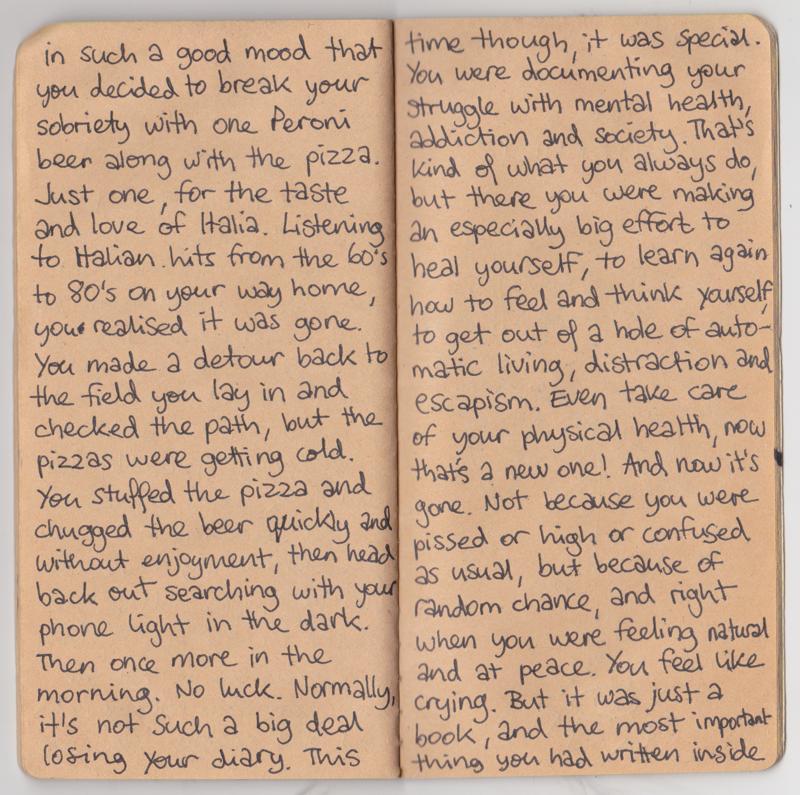 in such a good mood that
you decided to break your
sobriety with one Peroni
beer along with the pizza.
Just one, for the taste
and love of Italia. Listening
to Italian hits from the 60's
to 80's on your way home,
you realised it was gone.
You made a detour back to
the field you lay in and
checked the path, but the
pizzas were getting cold.
You stuffed the pizza and
chugged the beer quickly and
without enjoyment, then head
back out searching with your
phone light in the dark.
Then once more in the
morning. No luck. Normally,
it's not such a big deal
losing your diary. This
time though, it was special.
You were documenting your
struggle with mental health,
addiction and society. That's
kind of what you always do,
but there you were making
an especially big effort to
heal yourself, to learn again
how to feel and think yourself,
to get out of a hole of auto-
matic living, distraction and
escapism. Even take care
of your physical health, now
that's a new one! And now it's
gone. Not because you were
pissed or high or confused
as usual, but because of
random chance, and right
when you were feeling natural
and at peace. You feel like
crying. But it was just a
book, and the most important
thing you had written inside